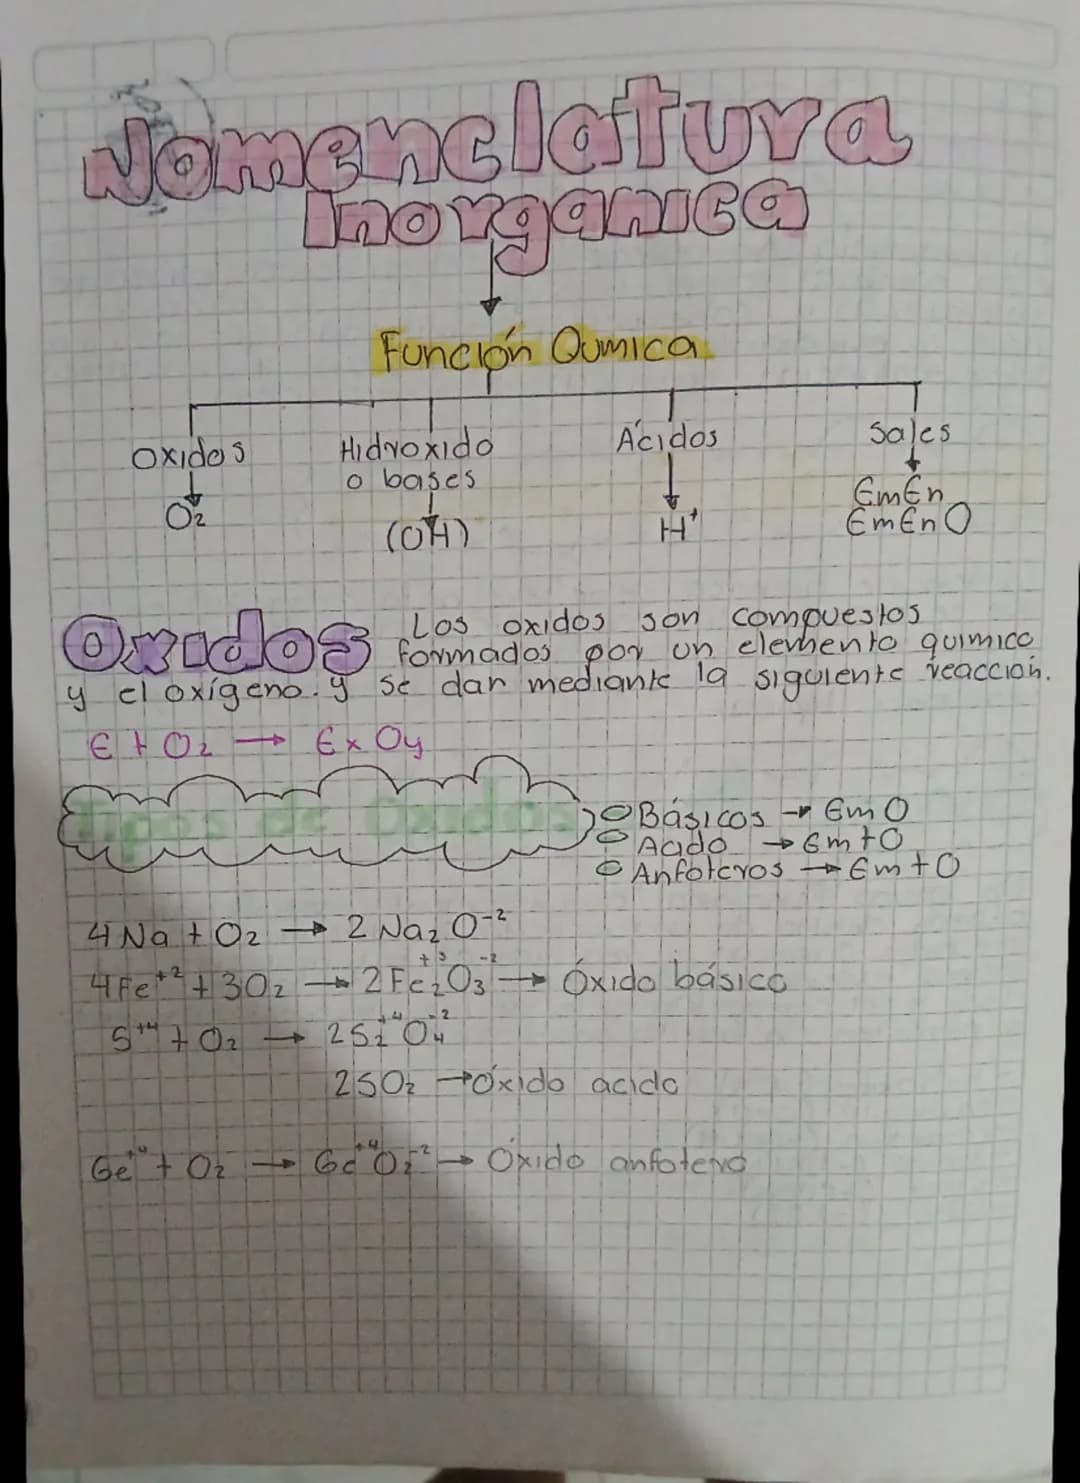 Nomenclatura
Inorganica
Función Qumica
Oxidos
Hidroxido
o bases
Ácidos
Sales
O2
(OH)
H+
EmEn
EmEnO
Oxidos
Los oxidos son compuestos
formados por un elemento quimico
y el oxígeno. y se dar mediante la siguiente reaccion.
E + O2 → ExOy
Tipos de Oxidos
Básicos → EmO
Acido → Em+O
Anfoteros → Em+O
4Na + O2 → 2 Na2 O-2
4Fe+2 + 3O2 → 2Fe2+3O3-2 → Óxido básico
S+4 + O2 → 2S2+4O4-2
2SO2 → Óxido acido
Ge+4 + O2 → Ge+4O2-2 → Óxido anfotero